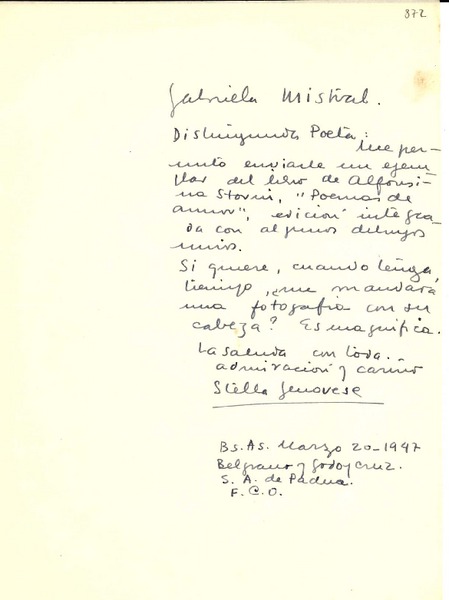 872
Gabriela Mistral.
Distinguida Poeta:
Me per-
mito enviarle un ejem
plar del libro de Alfonsi-
na Storni, "Poemas de
amor", edición integra-
da con algunos dibujos
míos.
Si quiere, cuando tenga,
tiempo, ¿me mandará
una fotografía con su
cabeza? Es magnífica.
La saluda con toda
admiración y cariño
Stella Genovese
Bs. As. Marzo 20-1947
Belgrano y Godoy Cruz.
S. A. de Padua.
F.C.O.